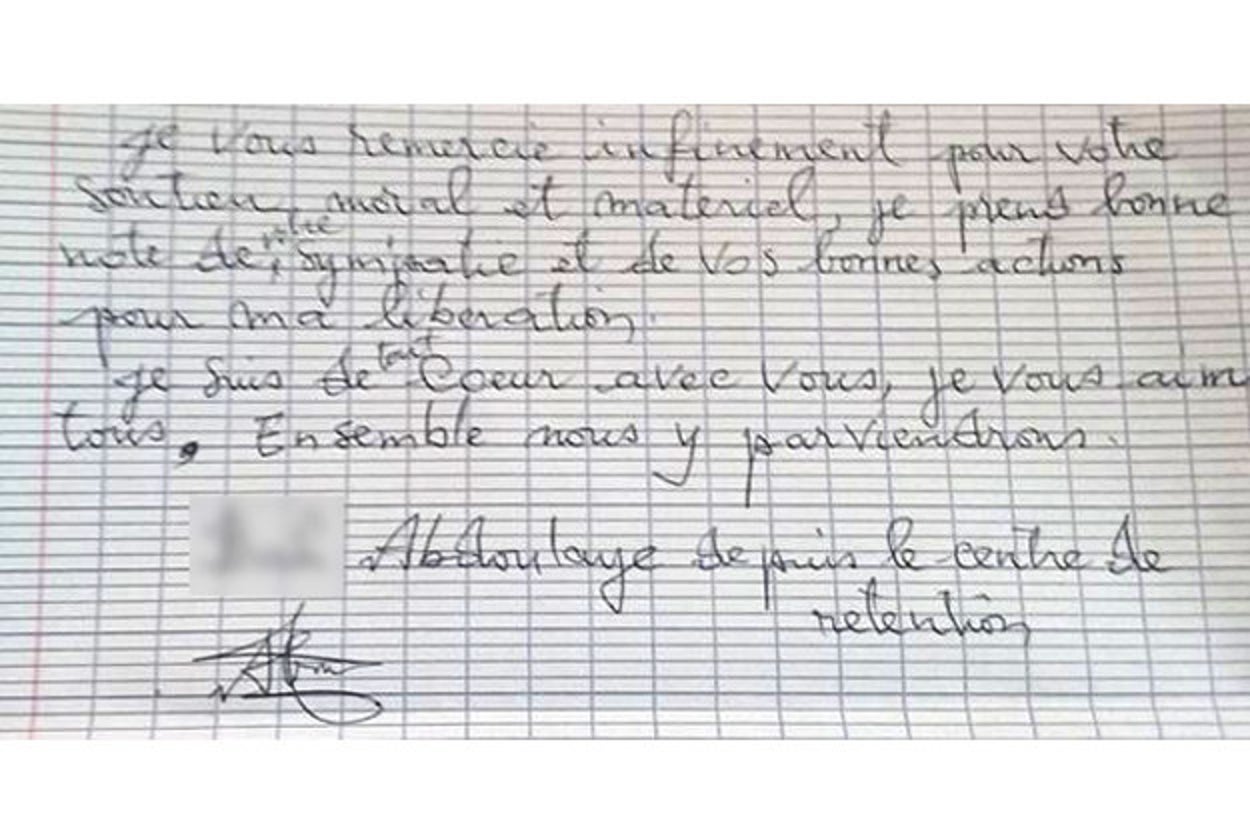 je vous remercie infiniment pour votre
soutien moral et materiel, je prens bonne
note de votre sympatie et de vos bonnes actions
pour ma libération.
je suis de tout Coeur avec vous, je vous aim
tous. Ensemble nous y parviendrons.
Abdoulaye depuis le centre de
retention